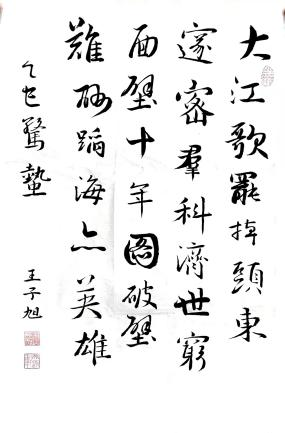 大江歌罷掉頭東
邃密羣科濟世窮
面壁十年圖破壁
難酬蹈海亦英雄
乙巳驚蟄 王子旭